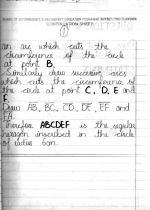 BOARD OF INTERMEDIATE & SECONDARY EDUCATION
CONTINUATION SHEET
1
an arc which cuts the
circumference of the circle
at point B.
Similarly draw successive arcs
which cuts the circumference of
the circle at point C, D, E and
F.
Draw AB, BC, CD, DE, EF and
FA.
Therefore ABCDEF is the regular
hexagon inscribed in the circle
of radius 5cm.